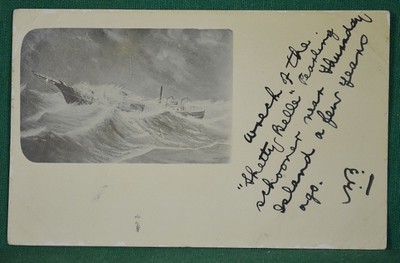 wreck of the
"Shetty Belle" Pearling
schooner near Thursday
Island a few years
ago.